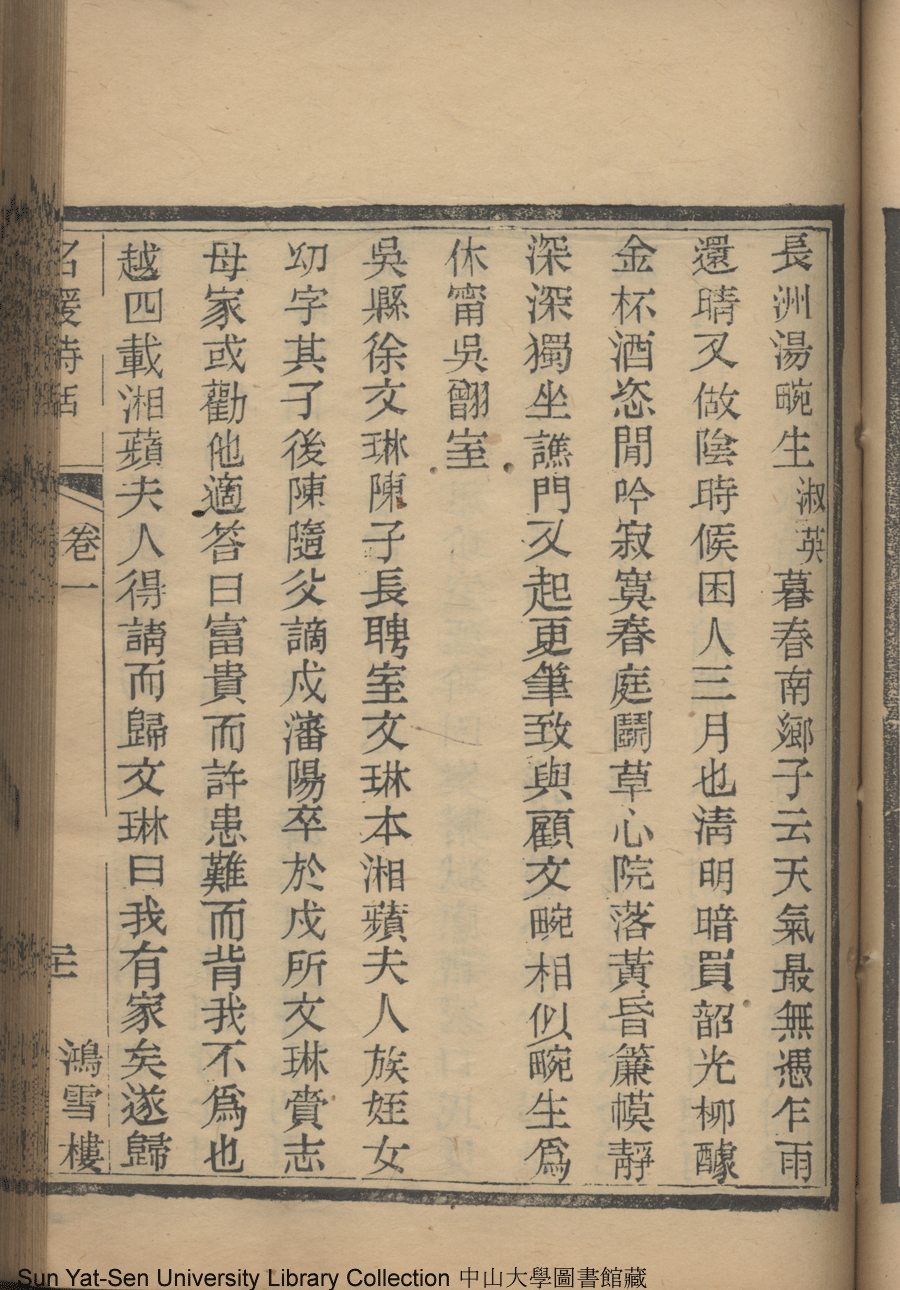 長洲湯畹生淑英暮春南鄉子云天氣最無憑乍雨
還晴又做陰時候困人三月也清明暗買韶光柳醵
金杯酒恣閒吟寂寞春庭鬭草心院落黃昏簾幙靜
深深獨坐譙門又起更筆致與顧文畹相似畹生爲
休甯吳翺室
吳縣徐文琳陳子長聘室文琳本湘蘋夫人族姪女
幼字其子後陳隨父謫戍瀋陽卒於戍所文琳賫志
母家或勸他適答曰富貴而許患難而背我不爲也
越四載湘蘋夫人得請而歸文琳曰我有家矣遂歸
名媛詩話
卷一
鴻雪樓
Sun Yat-Sen University Library Collection 中山大學圖書館藏